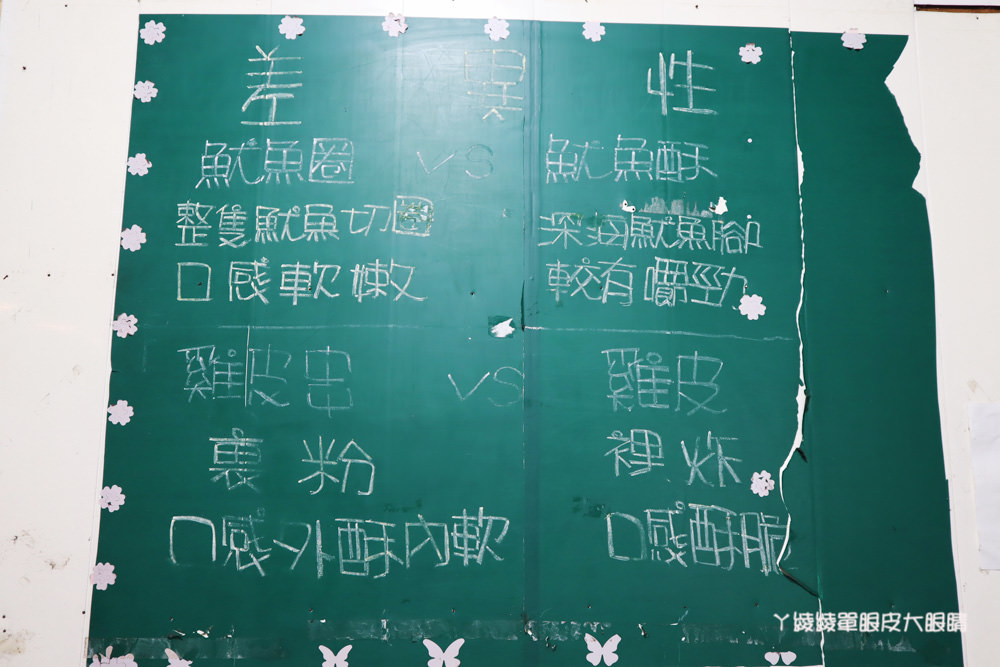 差異性
魷魚圈 VS 魷魚酥
整隻魷魚切圈 深海魷魚腳
口感軟嫩 較有嚼勁
雞皮串 VS 雞皮
裹粉 裡炸
口感外酥內軟 口感酥脆
ㄚ綾綾單眼皮大眼睛